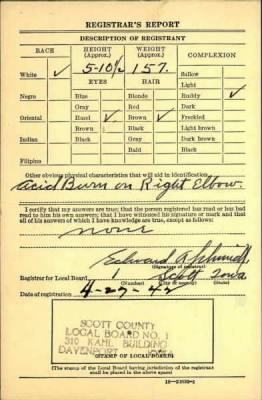 REGISTRAR'S REPORT
DESCRIPTION OF REGISTRANT
RACE HEIGHT (Approx.) WEIGHT (Approx.) COMPLEXION
White ✓ 5-10½ 157 Sallow
EYES HAIR Light
Negro Blue Blonde Ruddy ✓
Gray Red Dark
Oriental Hazel ✓ Brown ✓ Freckled
Brown Black Light brown
Indian Black Gray Dark brown
Bald Black
Filipino
Other obvious physical characteristics that will aid in identification
Acid Burn on Right Elbow.
I certify that my answers are true; that the person registered has read or has had
read to him his own answers; that I have witnessed his signature or mark and that
all of his answers of which I have knowledge are true, except as follows:
none
Edward A Schmidt
(Signature of registrar)
Registrar for Local Board 1 Scott Iowa
(Number) (City or county) (State)
Date of registration 4-27-42
SCOTT COUNTY
LOCAL BOARD NO. 1
310 KAHL BUILDING
DAVENPORT
(STAMP OF LOCAL BOARD)
(The stamp of the Local Board having jurisdiction of the registrant
shall be placed in the above space)